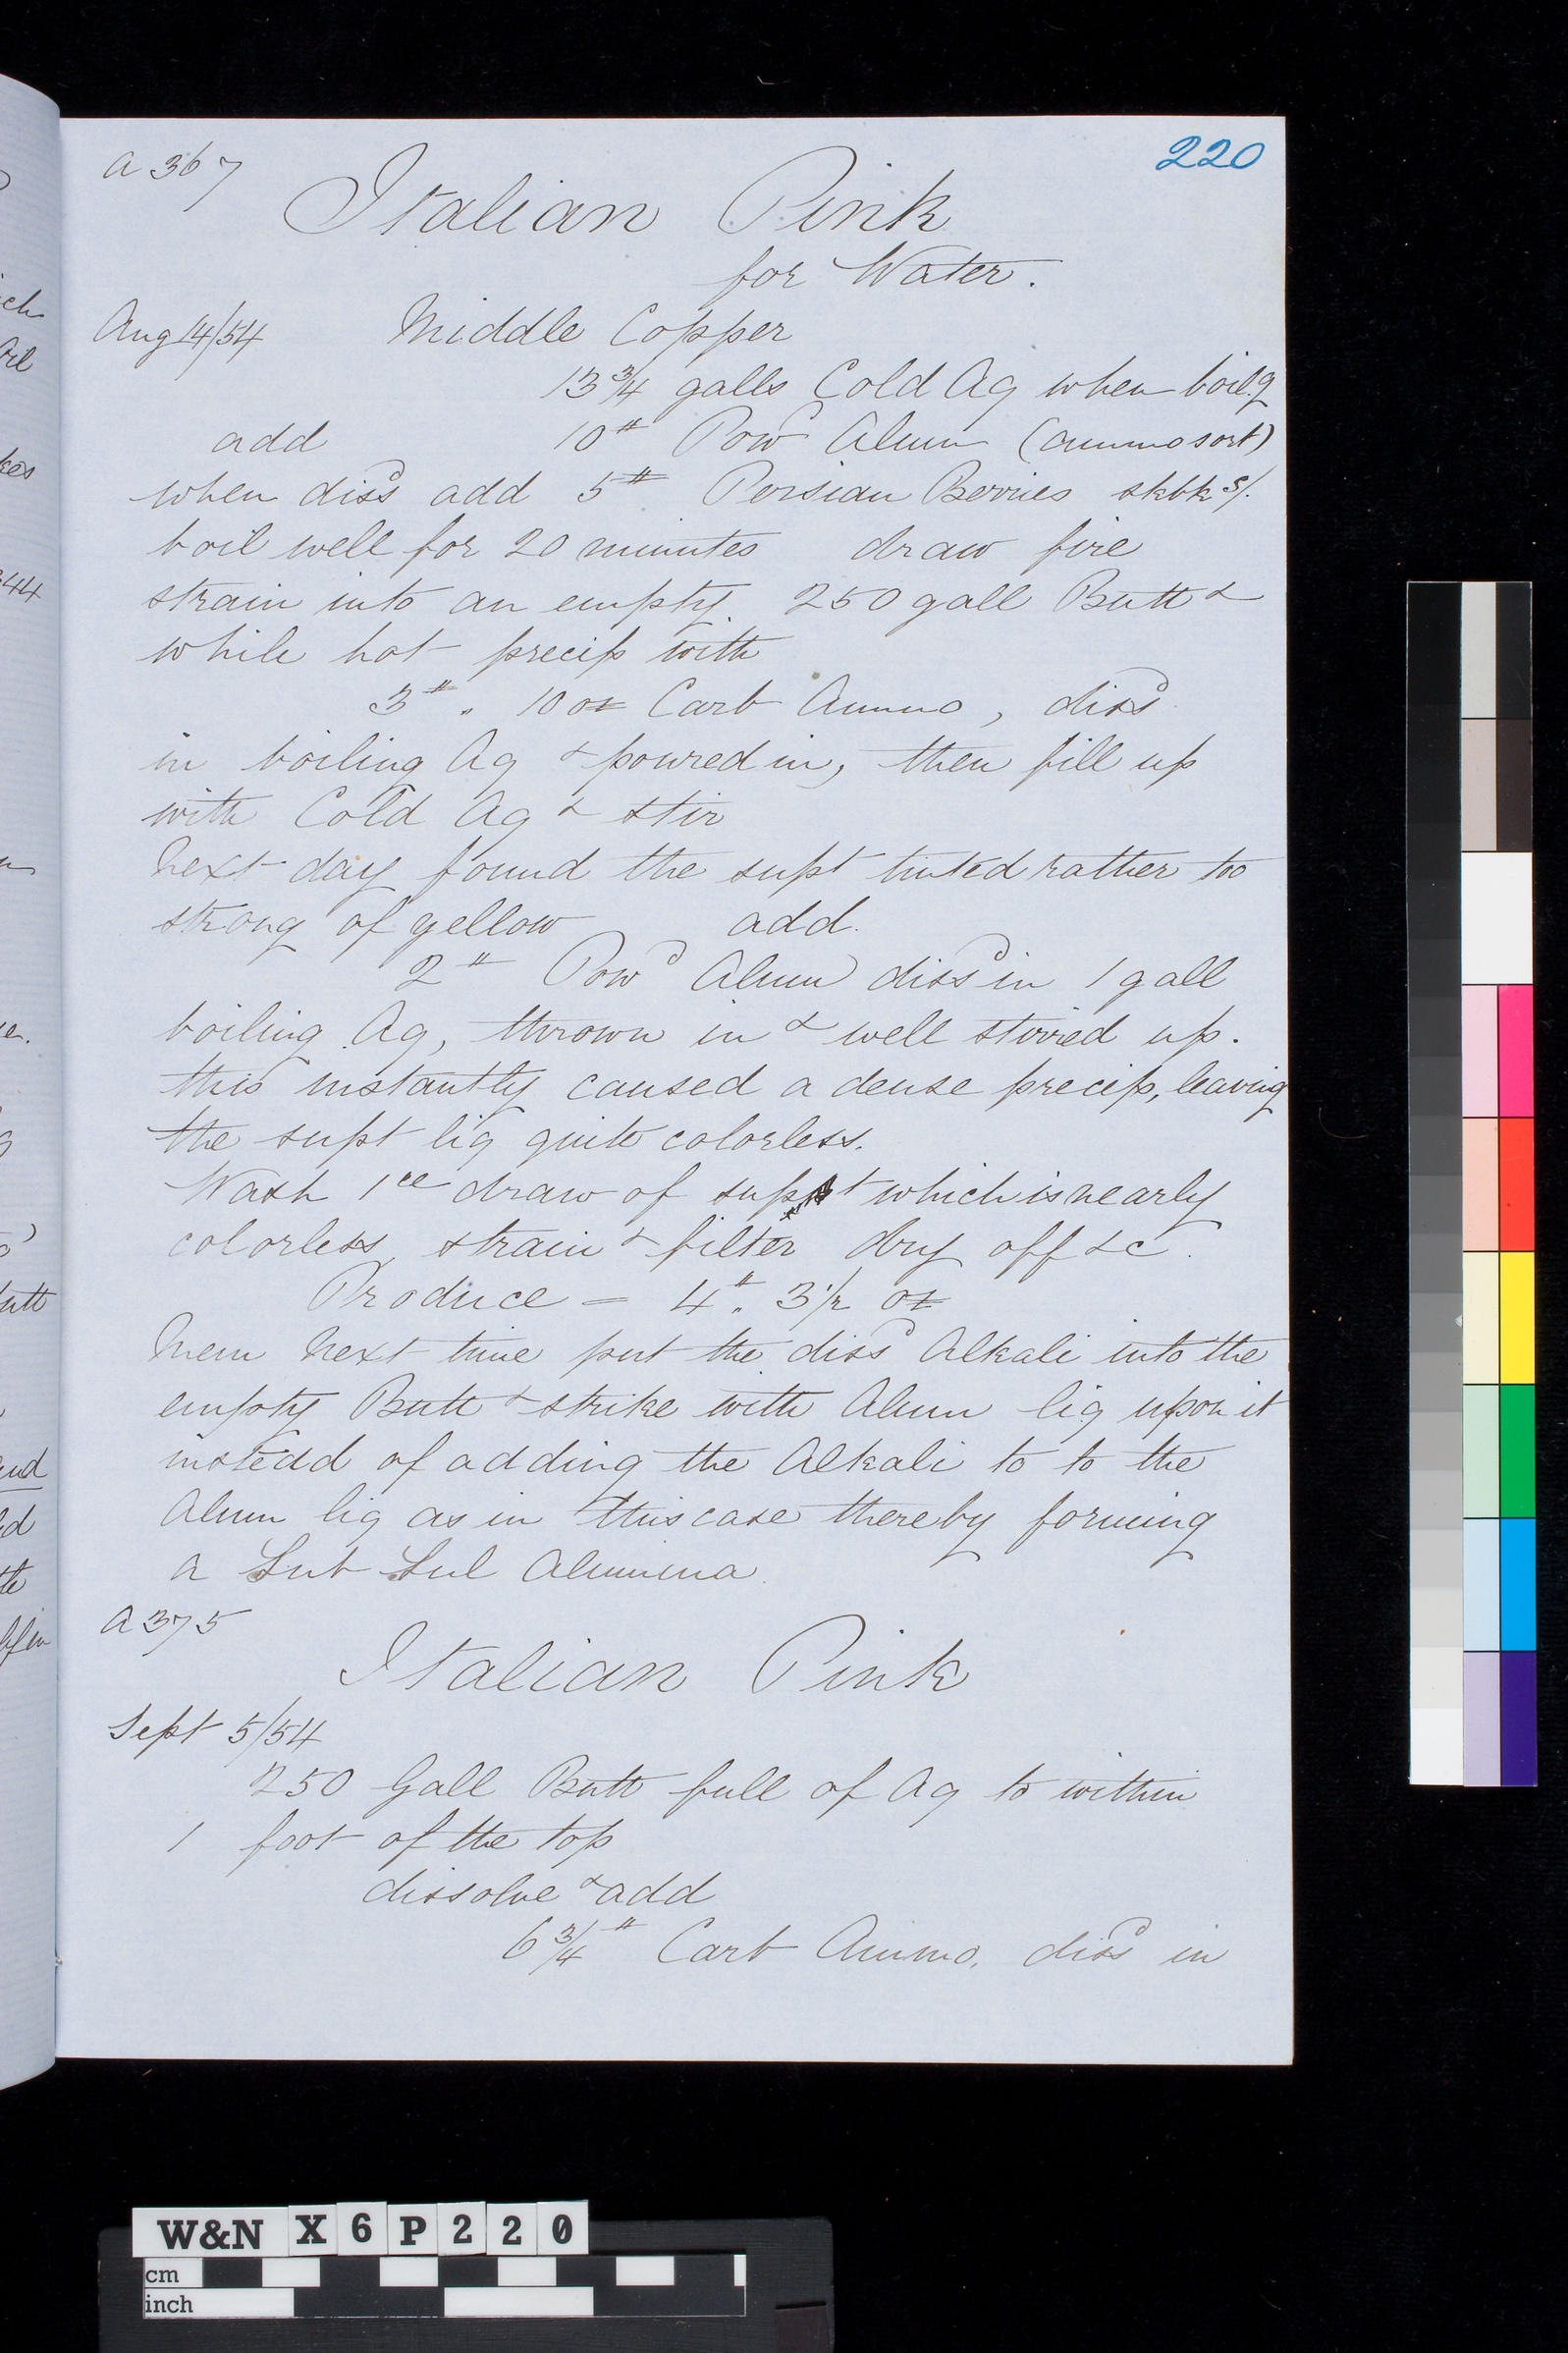 220
A 367
Italian Pink
for Water.
Aug 14/54 Middle Copper
13 3/4 galls Cold Aq when boilg
add 10# Powd Alum (ammo sort)
when dissd add 5# Persian Berries skbk s/.
boil well for 20 minutes draw fire
strain into an empty 250 gall Butt &
while hot precip with
3# " 10 oz Carb Ammo, dissd
in boiling Aq & poured in, then fill up
with Cold Aq & stir
Next day found the supt tinted rather too
strong of yellow add.
2# Powd Alum dissd in 1 gall
boiling Aq, thrown in & well stirred up.
this instantly caused a dense precip, leaving
the supt liq quite colorless.
Wash 1ce draw of supt which is nearly
colorless, strain & filter dry off &c.
Produce = 4# " 3 1/2 oz
Mem Next time put the dissd Alkali into the
empty Butt & strike with Alum liq upon it
instead of adding the Alkali to to the
Alum liq as in this case thereby forming
a Sub Sul Alumina
A 375
Italian Pink
Sept 5/54
250 Gall Butt full of Aq to within
1 foot of the top
dissolve & add
6 3/4# Carb Ammo, dissd in
W&N X6P220
cm
inch